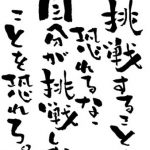 挑戦すること
恐れるな
自分が挑戦しな
ことを恐れろ。